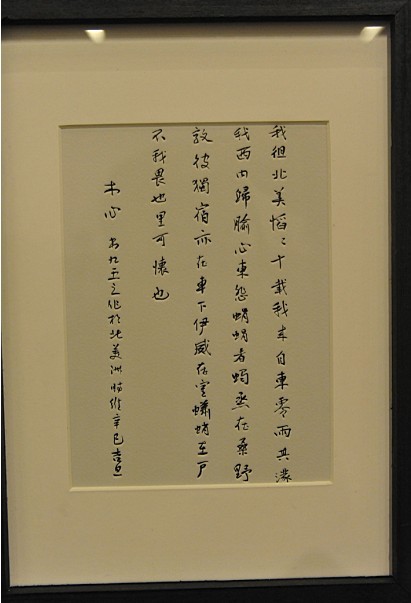 我徂北美慆〻十載我来自東零雨其濛
我西曰歸心東怨蜎蜎者蠋烝在桑野
敦彼獨宿亦在車下伊威在室蠨蛸在戶
不我畏也里可懷也
木心 书九五之作於北美洲時維辛巳吉旦